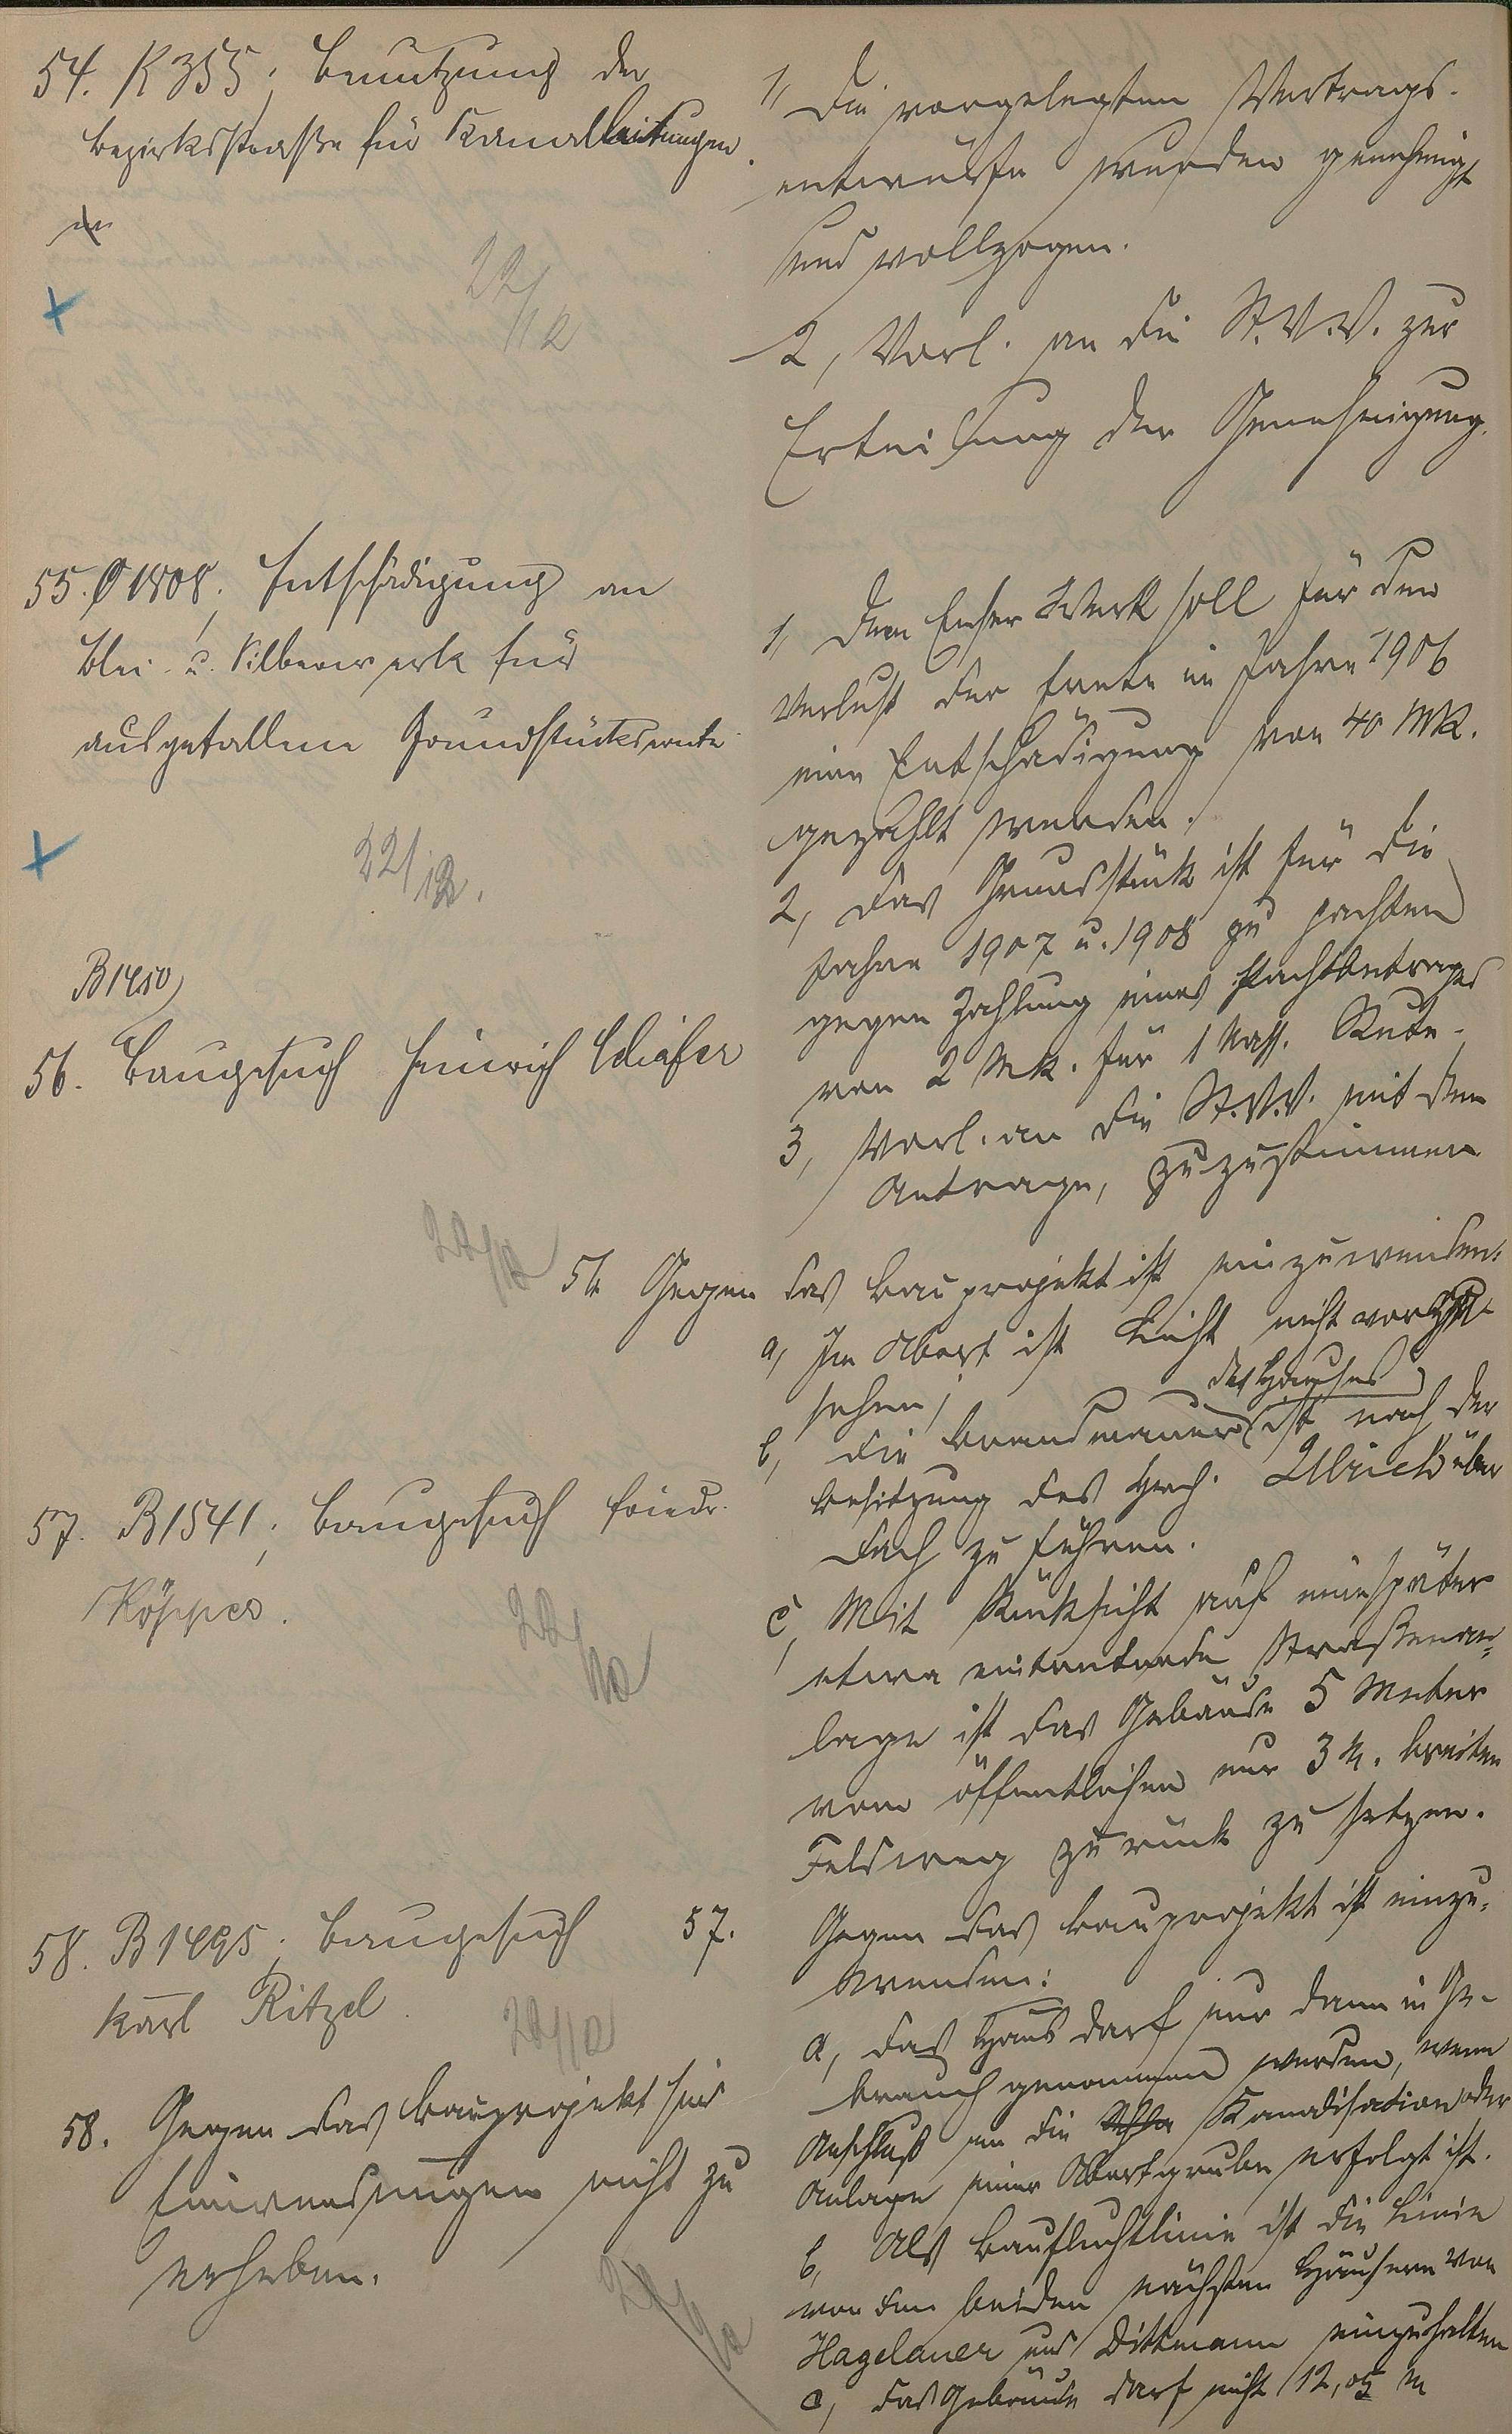 54. K 355; Benutzung der
Bezirksstraße für Kanalleitungen.
22/12
1, Die vorgelegten Vertrags-
entwürfe werden genehmigt
und vollzogen.
2, Vorl. an die St.V.V. zur
Erteilung der Genehmigung.
55. O 1808; Entschädigung an
Blei- u. Silberwerk für
ausgefallene Grundstücksernte
22/12.
1, Dem Emser Werk soll für den
Verlust der Ernte im Jahre 1906
eine Entschädigung von 40 Mk.
gezahlt werden.
2, Das Grundstück ist für die
Jahre 1907 u. 1908 zu pachten
gegen Zahlung eines Pachtbetrages
von 2 Mk. für 1 Nass. Rute.
3, Vorl. an die St.V.V. mit dem
Antrage, zuzustimmen
B 1450
56. Baugesuch Heinrich Schäfer
22/12
56 Gegen das Bauprojekt ist einzuwenden:
a, Im Abort ist Licht nicht vorge-
sehen;
b, Die Brandmauer des Hauses ist nach der
Besitzung des Hch. Ulrich über
Dach zu führen.
c, Mit Rücksicht auf eine später
etwa eintretende Straßenan-
lage ist das Gebäude 5 Meter
vom öffentlichen nur 3 M. breiten
Feldweg zurück zu setzen.
57. B 1541; Baugesuch Friedr.
Köpper.
22/12
57. Gegen das Bauprojekt ist einzu-
wenden:
a, Das Haus darf nur dann in Ge-
brauch genommen werden, wenn
Anschluß an die Kanalisation oder
Anlage einer Abortgrube erfolgt ist.
b, Als Baufluchtlinie ist die Linie
von den beiden nächsten Häusern von
Hagelauer und Dittmann einzuhalten
c, Das Gebäude darf nicht 12,05 m
58. B 1495; Baugesuch
Karl Ritzel.
22/12
58. Gegen das Bauprojekt sind
Einwendungen nicht zu
erheben.
22/12